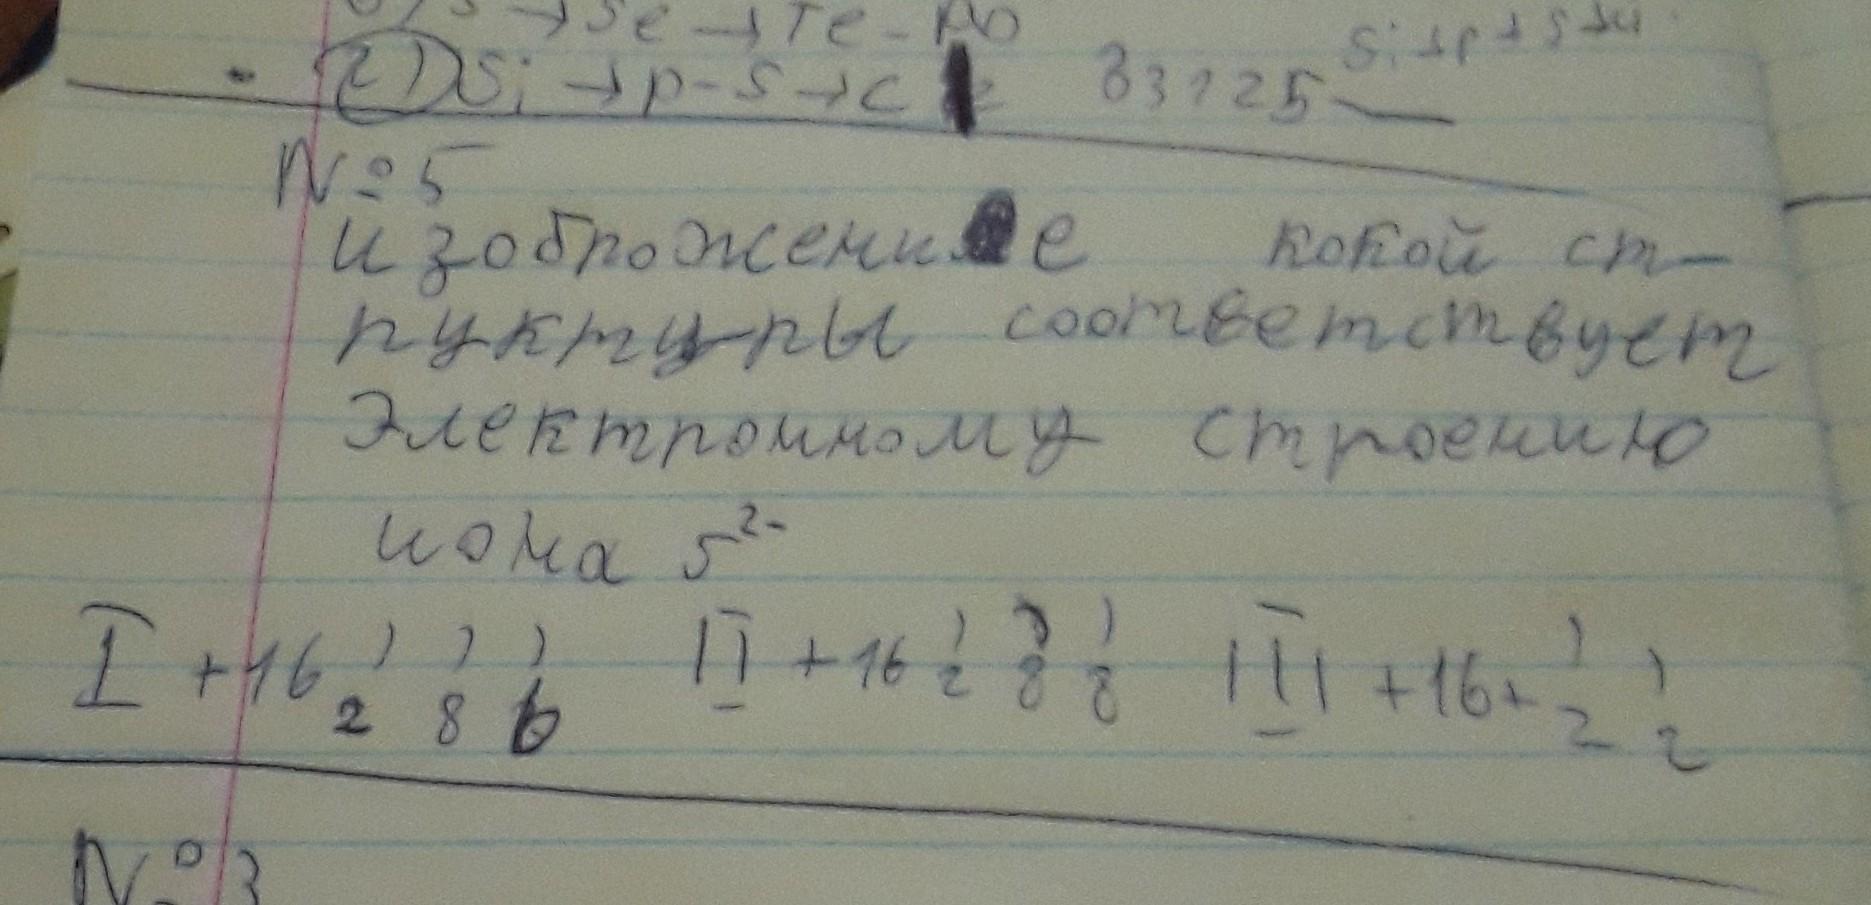 S → Se → Te - Po
2) Si → p - S → C 33225 Si → p → S → Cl
№ 5
изоброжение кокой ст-
руктуры соответствует
Электронному строению
иона S²⁻
I +16 ) ) ) II +16 ) ) ) III +16+ ) )
2 8 6 2 8 8 2 2
№ 3